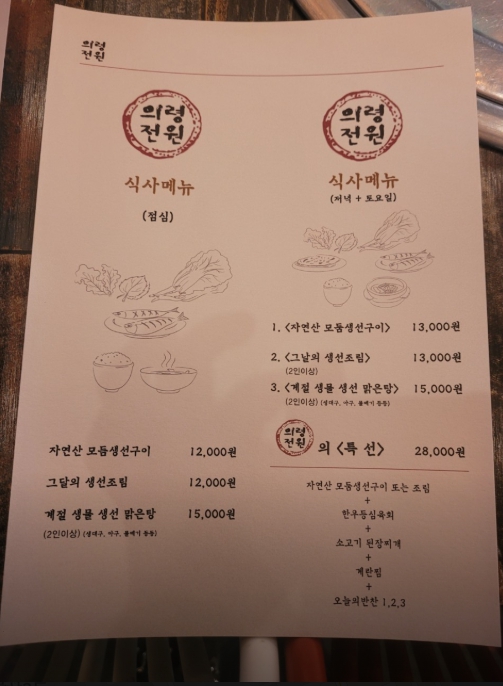 의령
전원
의령
전원
식사메뉴
(점심)
자연산 모둠생선구이 12,000원
그달의 생선조림 12,000원
계절 생물 생선 맑은탕 15,000원
(2인이상) (생대구, 아구, 물메기 등등)
의령
전원
식사메뉴
(저녁 + 토요일)
1. <자연산 모둠생선구이> 13,000원
2. <그날의 생선조림> 13,000원
(2인이상)
3. <계절 생물 생선 맑은탕> 15,000원
(2인이상) (생대구, 아구, 물메기 등등)
의령
전원 의 <특 선> 28,000원
자연산 모둠생선구이 또는 조림
+
한우등심육회
+
소고기 된장찌개
+
계란찜
+
오늘의반찬 1,2,3